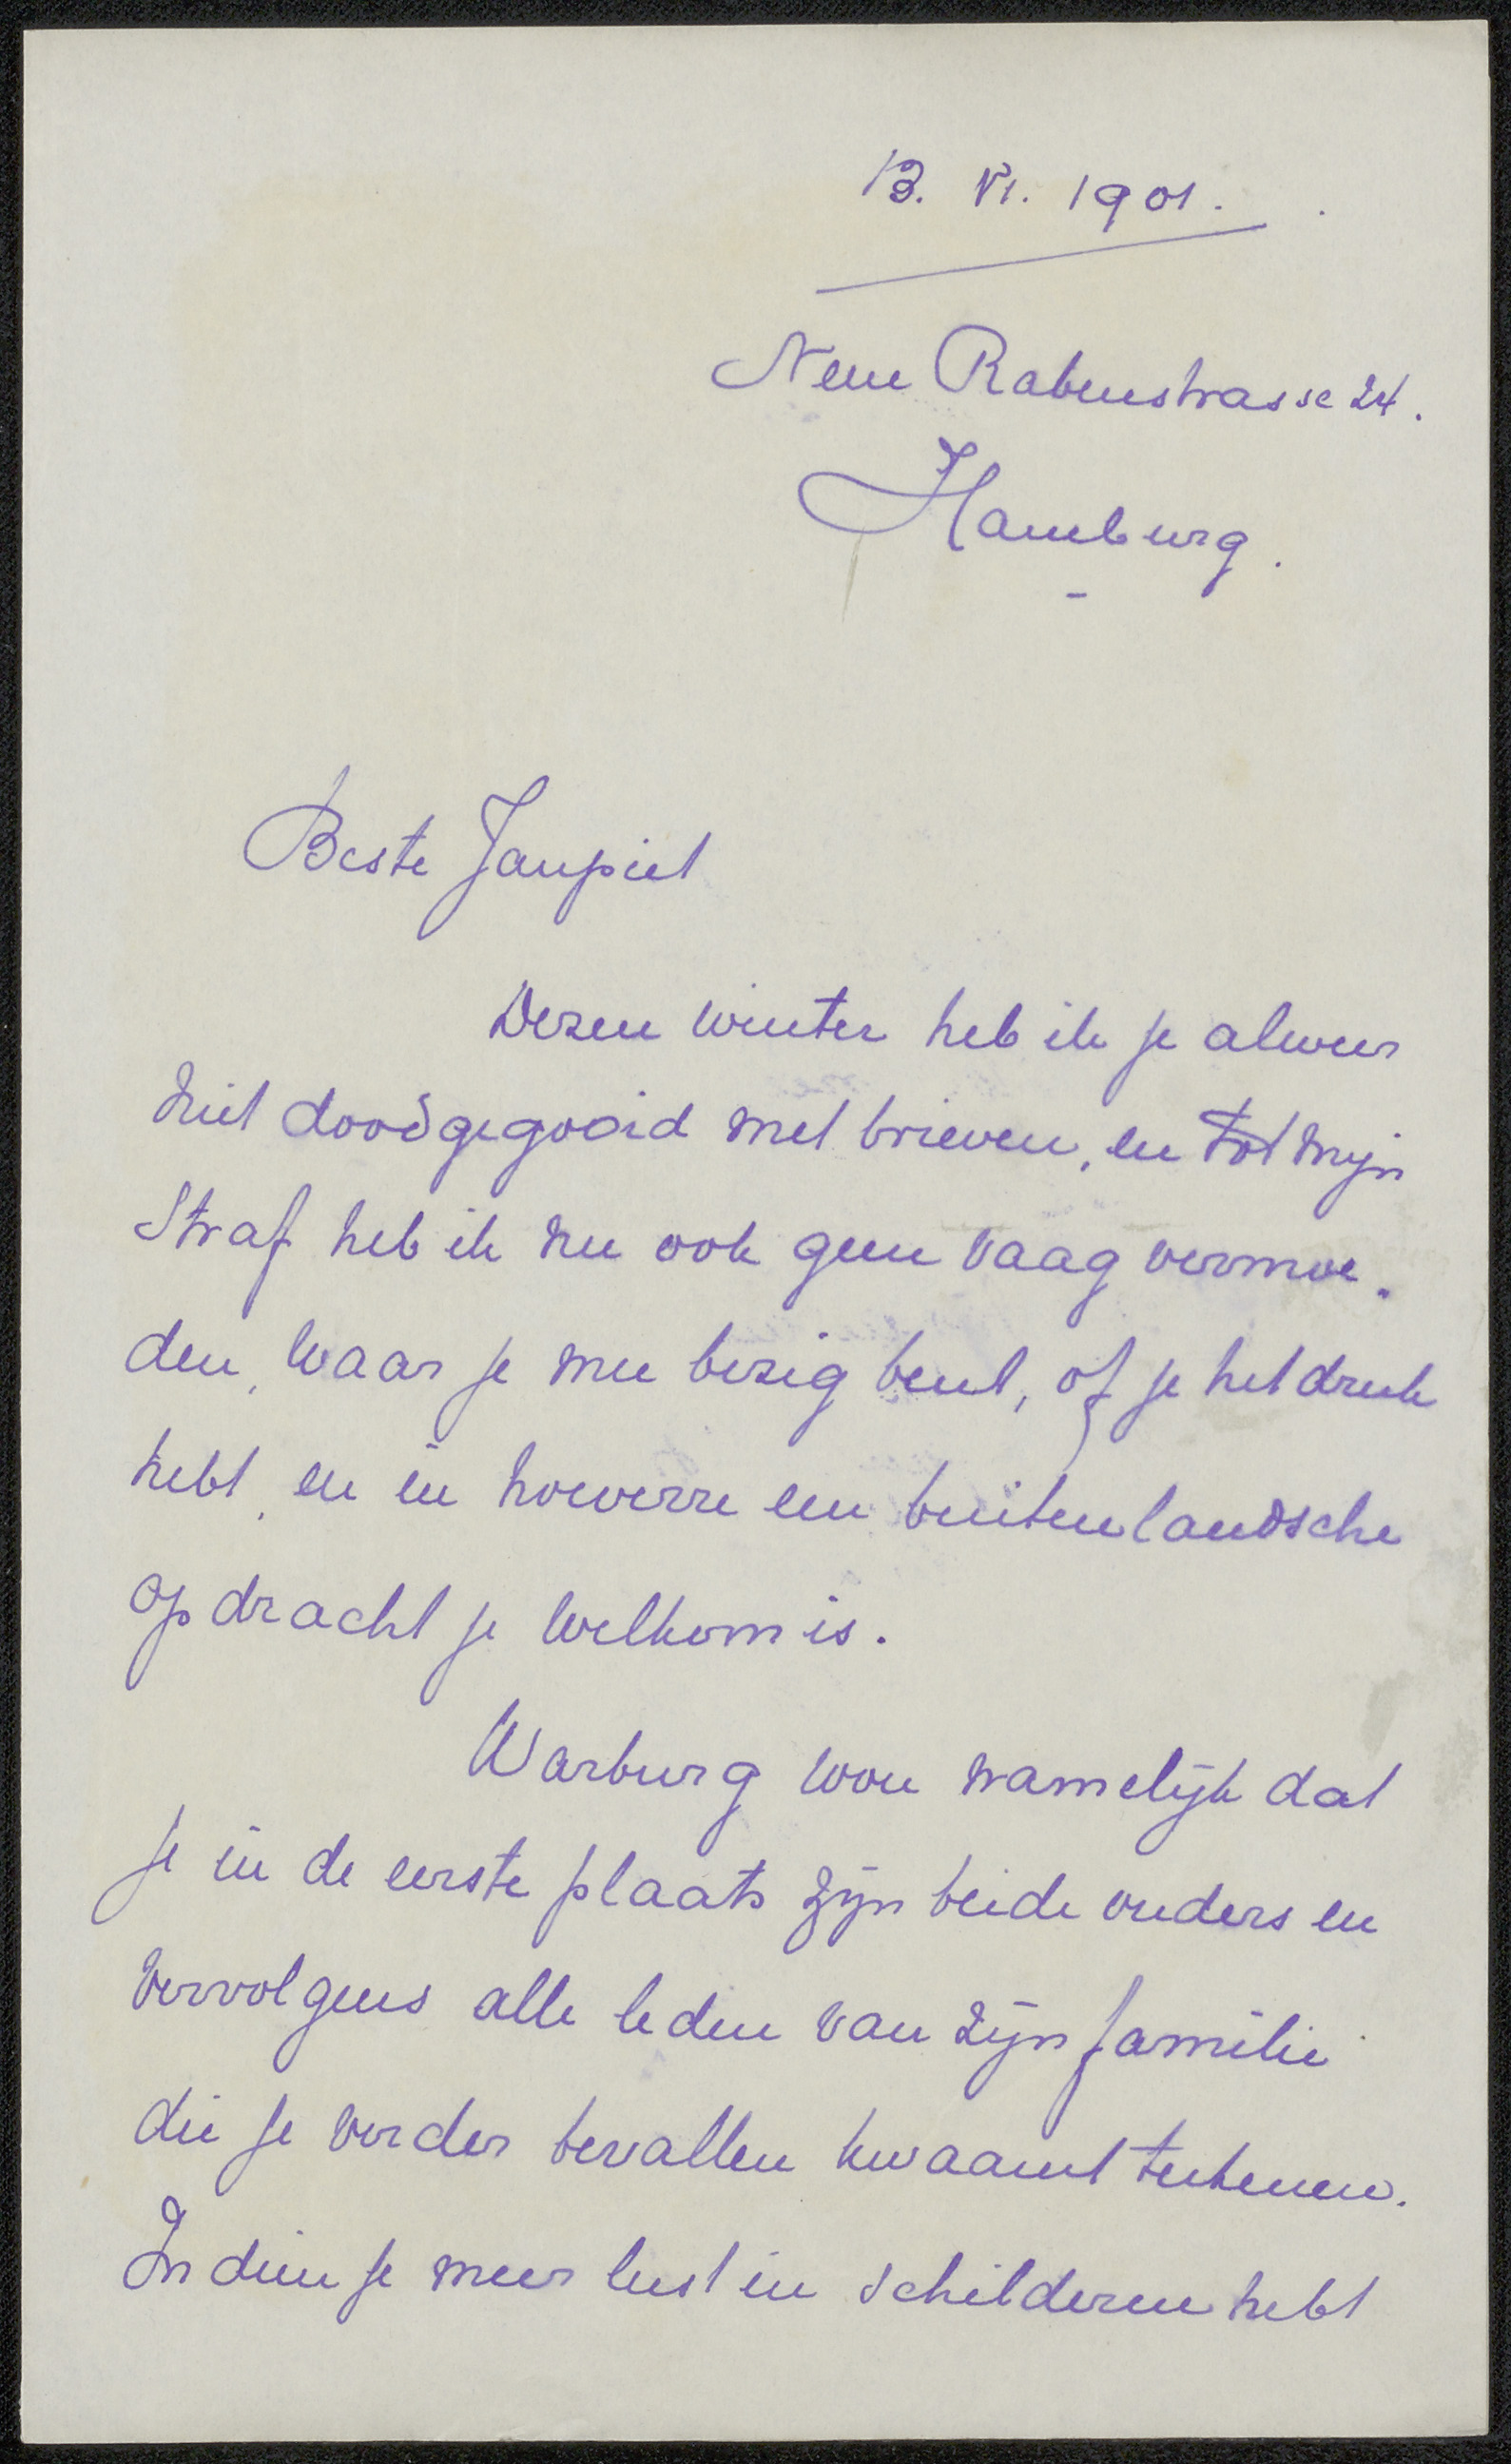 13. VI. 1901.
Neue Rabenstrasse 24.
Hamburg.
Beste Janpiet
Dezen winter heb ik je alweer
niet doodgegooid met brieven, en tot mijn
straf heb ik nu ook geen vaag vermoe-
den, waar je mee bezig bent, of je het druk
hebt, en in hoeverre een buitenlandsche
opdracht je welkom is.
Warburg wou namelijk dat
je in de eerste plaats zijn beide ouders en
vervolgens alle leden van zijn familie
die je verder bevallen kwaamt teekenen.
Indien je meer lust in schilderen hebt